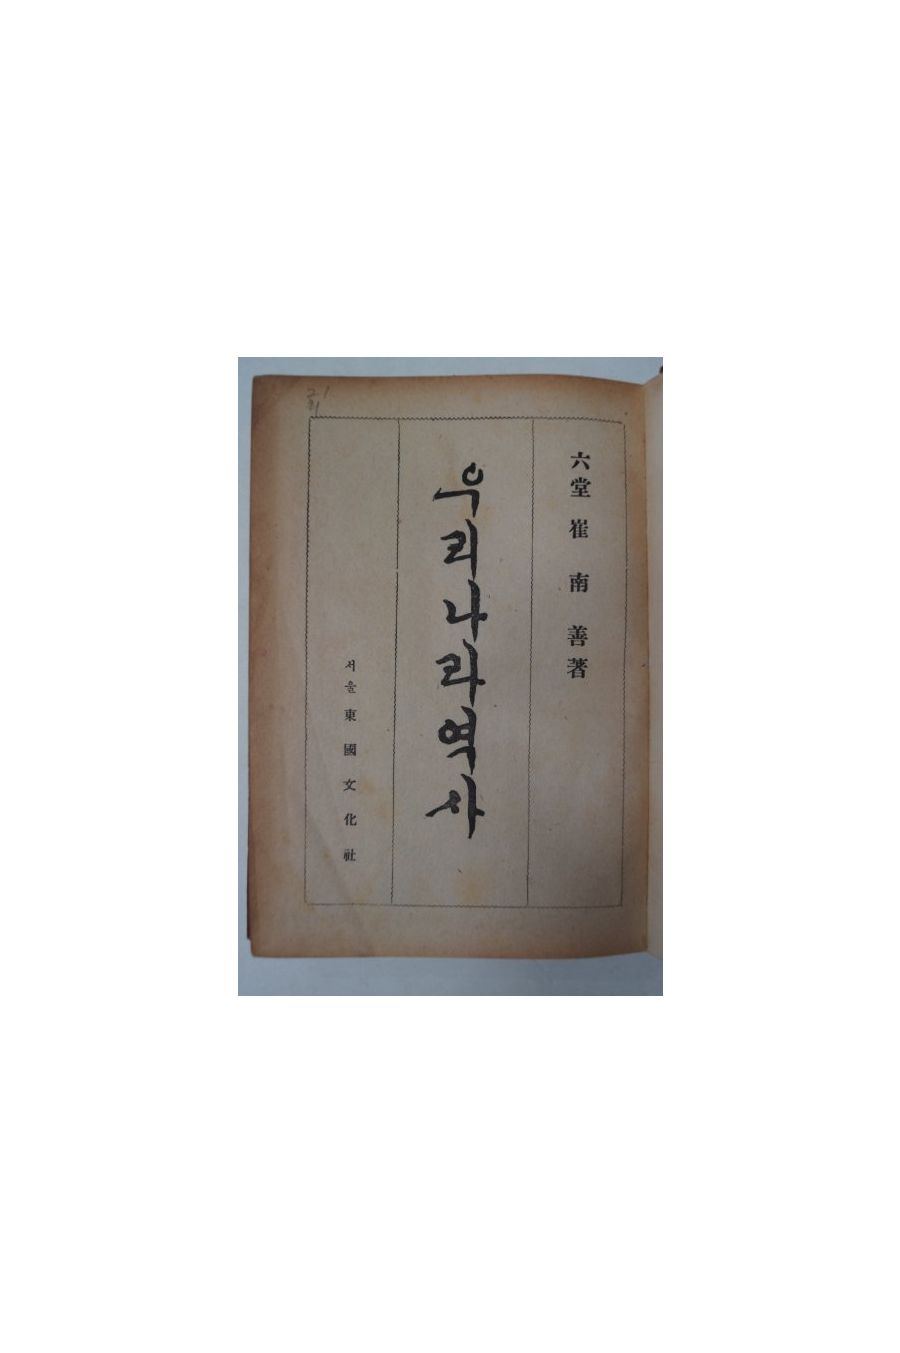 六堂 崔南善 著
우리나라역사
서울 東國文化社